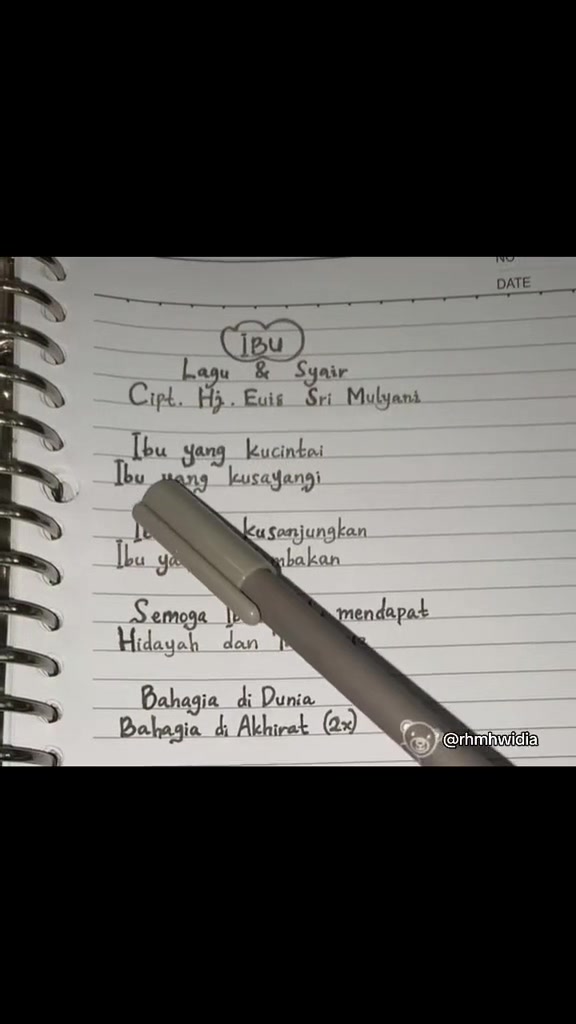 NO
DATE
IBU
Lagu & Syair
Cipt. Hj. Euis Sri Mulyani
Ibu yang kucintai
Ibu yang kusayangi
kusanjungkan
Ibu
Semoga mendapat
Hidayah dan
Bahagia di Dunia
Bahagia di Akhirat (2x)
@rhmhwidia